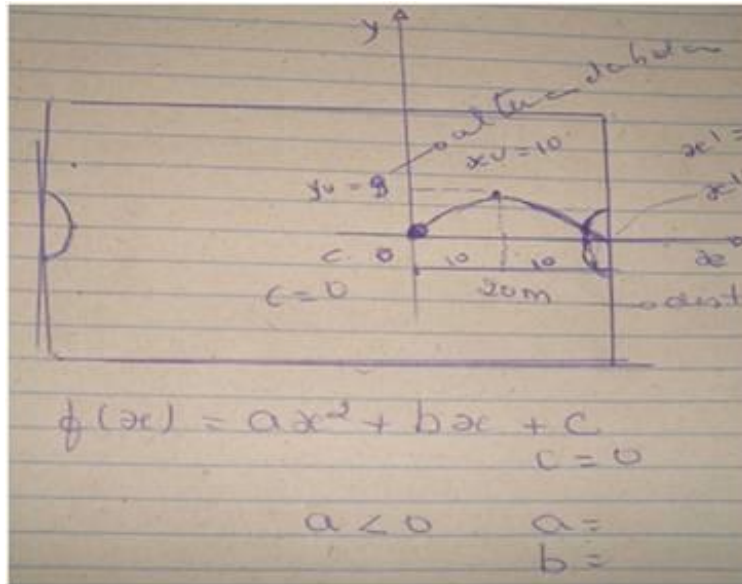 y
altura da bola
xv = 10
x' =
yv = 8
x'
c. 0 10 10 x
c = 0 20m
dist
f(x) = ax² + bx + c
c = 0
a < 0 a =
b =